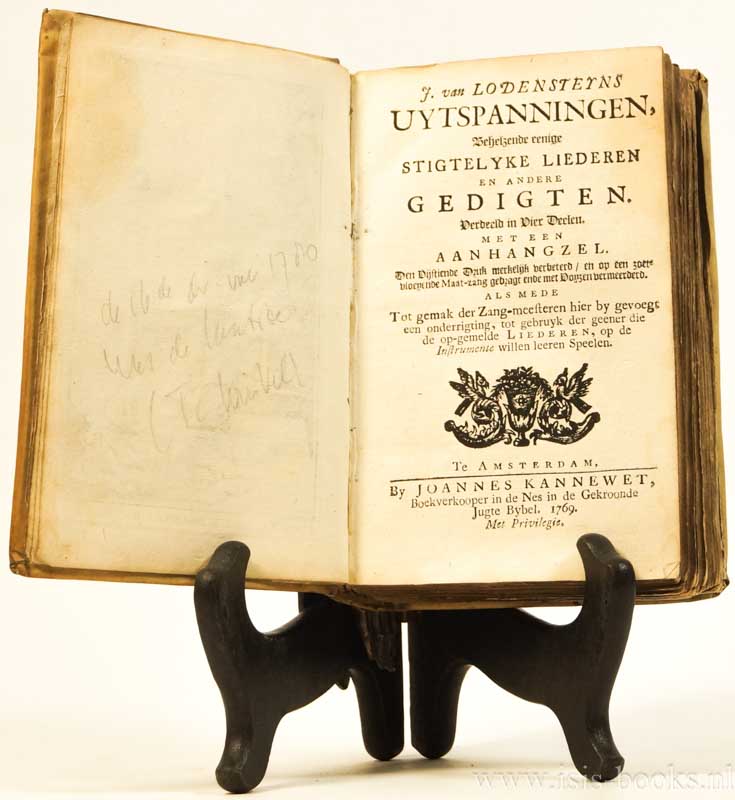 J. van LODENSTEYNS
UYTSPANNINGEN,
Behelzende eenige
STIGTELYKE LIEDEREN
EN ANDERE
GEDIGTEN.
Verdeeld in Vier Deelen.
MET EEN
AANHANGZEL.
Den Vijftiende Druk merkelijk verbeterd / en op een zoet-
vloeyende Maat-zang gebragt ende met Voyzen vermeerderd.
ALS MEDE
Tot gemak der Zang-meesteren hier by gevoegt
een onderrigting, tot gebruyk der geener die
de op-gemelde LIEDEREN, op de
Instrumente willen leeren Speelen.
Te AMSTERDAM,
By JOANNES KANNEWET,
Boekverkooper in de Nes in de Gekroonde
Jugte Bybel. 1769.
Met Privilegie.
de 16de dr van 1780
www.isis-books.nl